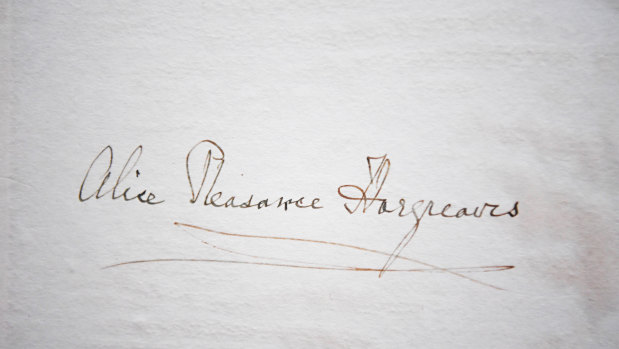 Alice Pleasance Hargreaves